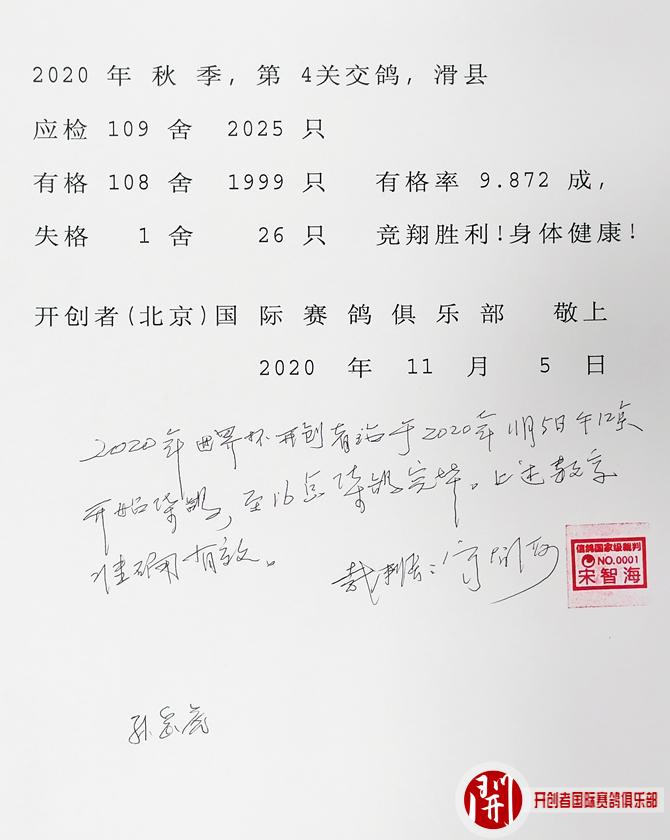 2020 年 秋 季, 第 4关交鸽, 滑县
应检 109 舍 2025 只
有格 108 舍 1999 只 有格率 9.872 成,
失格 1 舍 26 只 竞翔胜利!身体健康!
开创者(北京)国 际 赛 鸽 俱 乐 部 敬上
2020 年 11 月 5 日
2020年 世界杯开创者站于2020年11月5日午12点
开始集鸽, 至16点集鸽完毕。上述数字
准确有效。
裁判长: 宋智海
信鸽国家级裁判
NO.0001
宋智海
开创者国际赛鸽俱乐部